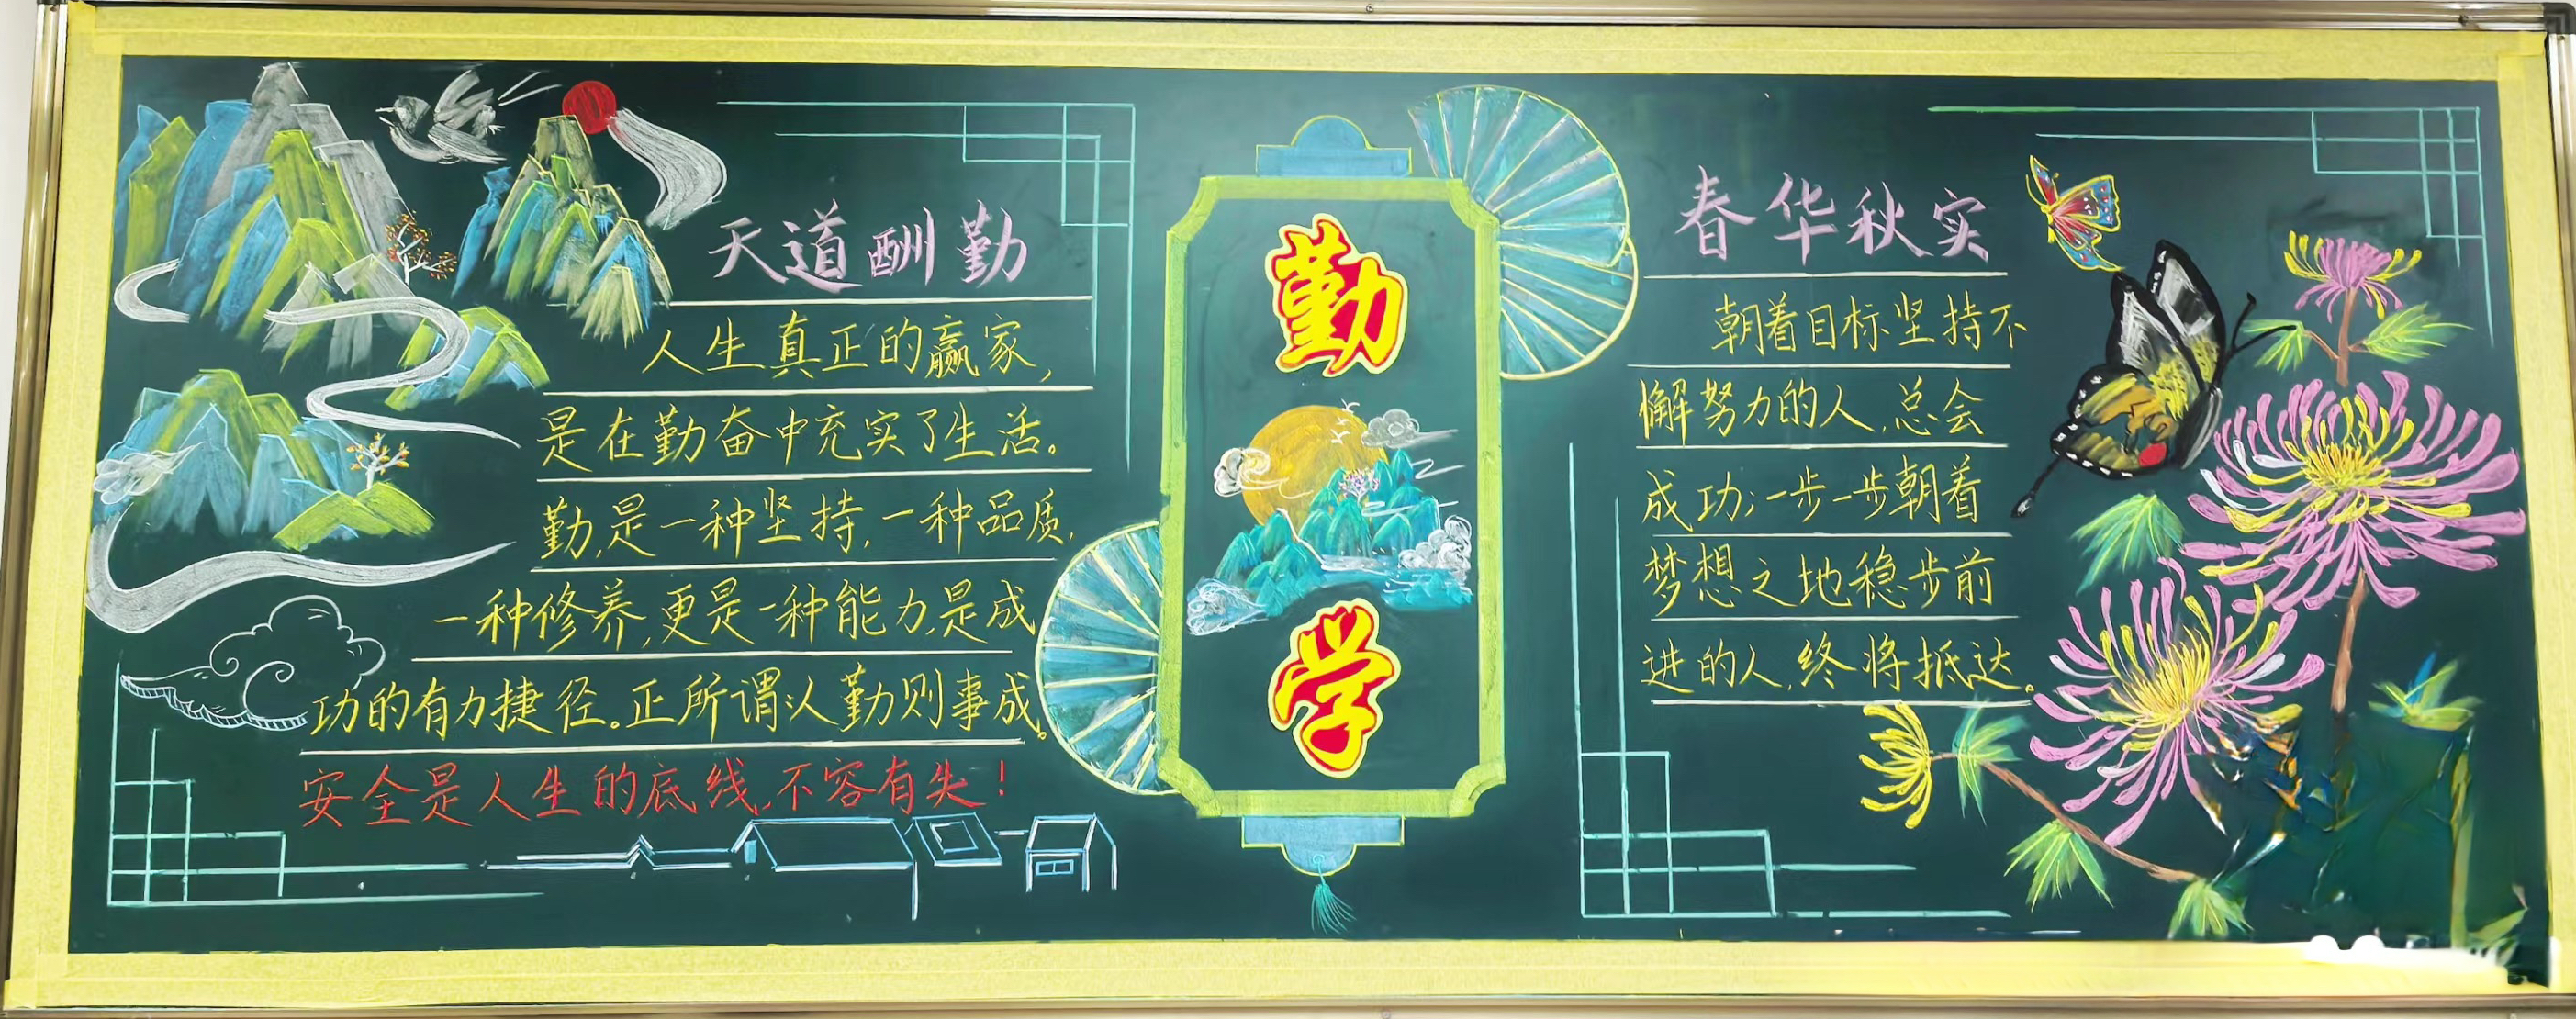 天道酬勤
人生真正的赢家,
是在勤奋中充实了生活。
勤,是一种坚持,一种品质,
一种修养,更是一种能力,是成
功的有力捷径。正所谓:人勤则事成。
安全是人生的底线,不容有失!
勤
学
春华秋实
朝着目标坚持不
懈努力的人,总会
成功;一步一步朝着
梦想之地稳步前
进的人,终将抵达。